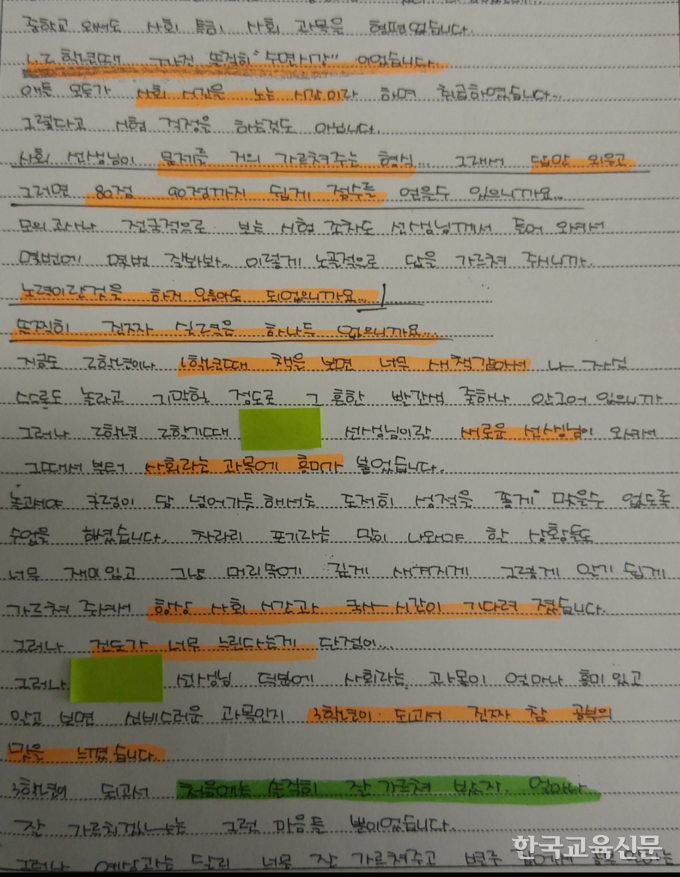 중학교 와서도 사회 특히 사회 과목은 형편없습니다.
1, 2 학년때 그냥 솔직히 "수면시간" 이었습니다.
애들 모두가 사회 시간은 노는 시간이라 하며 취급하였습니다..
그렇다고 시험 걱정을 하는것도 아닙니다.
사회 선생님이 문제를 거의 가르쳐주는 형식... 그래서 답만 외우고
그러면 80점 90점까지 쉽게 점수를 얻을수 있으니까요..
모의고사나 전국적으로 보는 시험 조차도 선생님께서 들어 와서
몇번에 몇번 잘봐봐~ 이렇게 노골적으로 답을 가르쳐 주시니까.
노력이란것을 하지 않아도 되었으니까요...
솔직히 진짜 실력은 하나도 없으니까요...
지금도 2학년이나 1학년때 책을 보면 너무 새책같아서 나 자신
스스로도 놀라고 기막힐 정도로 그 흔한 빨간색 줄하나 안그어 있으니까
그러나 2학년 2학기때 선생님이란 새로운 선생님이 와서
그때서 부터 사회라는 과목에 흥미가 붙었습니다.
놀고서야 구렁이 담 넘어가듯 해서는 도저히 성적을 좋게 맞을수 없도록
수업을 해줬습니다. 차라리 포기라는 말이 나와야 할 상황들도
너무 재미있고 그냥 머리속에 깊게 새겨지게 그렇게 알기 쉽게
가르쳐 주셔서 항상 사회 시간과 국사 시간이 기다려 졌습니다.
그러나 진도가 너무 느린다는게 단점이...
그러나 선생님 덕분에 사회라는 과목이 얼마나 흥미 있고
알고 보면 신비스러운 과목인지 3학년이 되고서 진짜 참 공부의
맛을 느꼈습니다.
3학년이 되고서 처음에는 솔직히 잘 가르쳐 보았자. 얼마나
잘 가르치겠냐는 그런 마음들 뿐이었습니다.
그러나 예상과는 달리 너무 잘 가르쳐주고
한국교육신문